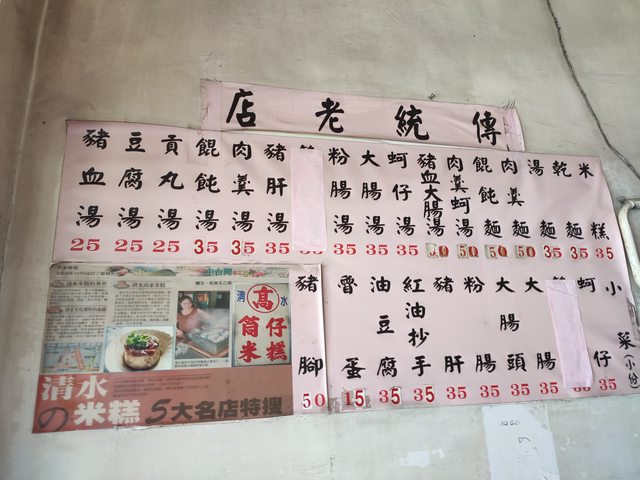 傳統老店
米糕 35
乾麵 35
湯麵 35
肉羹麵 50
餛飩麵 50
肉羹蚵湯 50
豬血大腸湯
蚵仔湯 35
大腸湯 35
粉腸湯 35
豬肝湯 35
肉羹湯 35
餛飩湯 35
貢丸湯 25
豆腐湯 25
豬血湯 25
小菜(小份)
蚵仔 35
大腸 35
大腸頭 35
粉腸 35
豬肝 35
紅油抄手 35
油豆腐 35
魯蛋 15
豬腳 50
清水高家米糕
清高水
筒仔
米糕
清水
の米糕 5大名店特搜